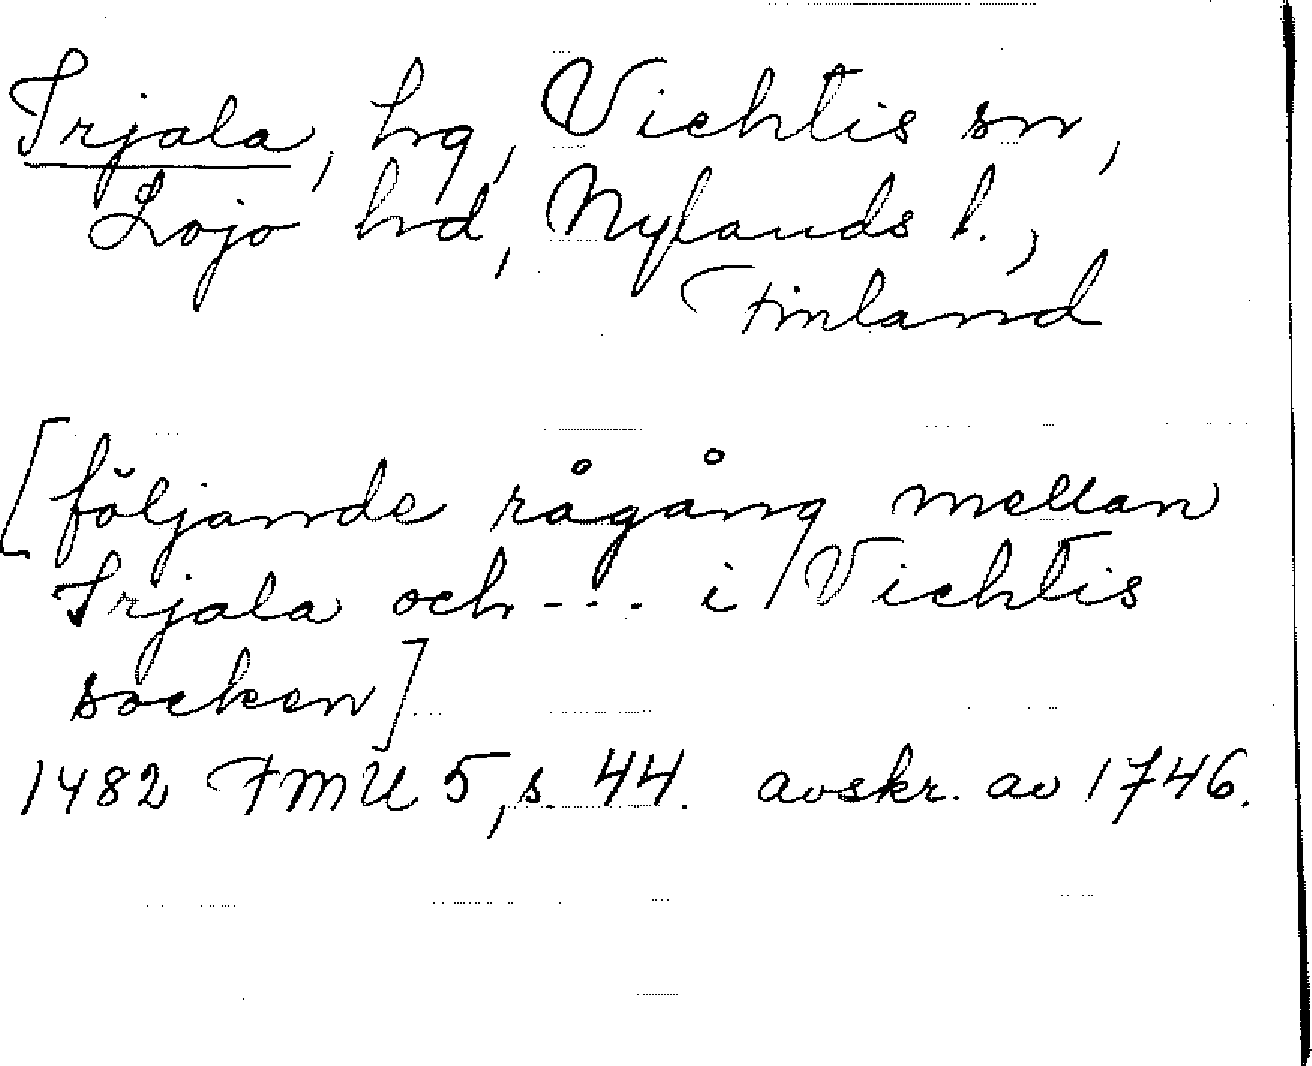 Irjala, hg, Vichtis sn,
Lojo hd, Nylands l.,
Finland
[följande rågång mellan
Irjala och --- i Vichtis
socken]
1482 FMU 5, s. 44. avskr. av 1746.